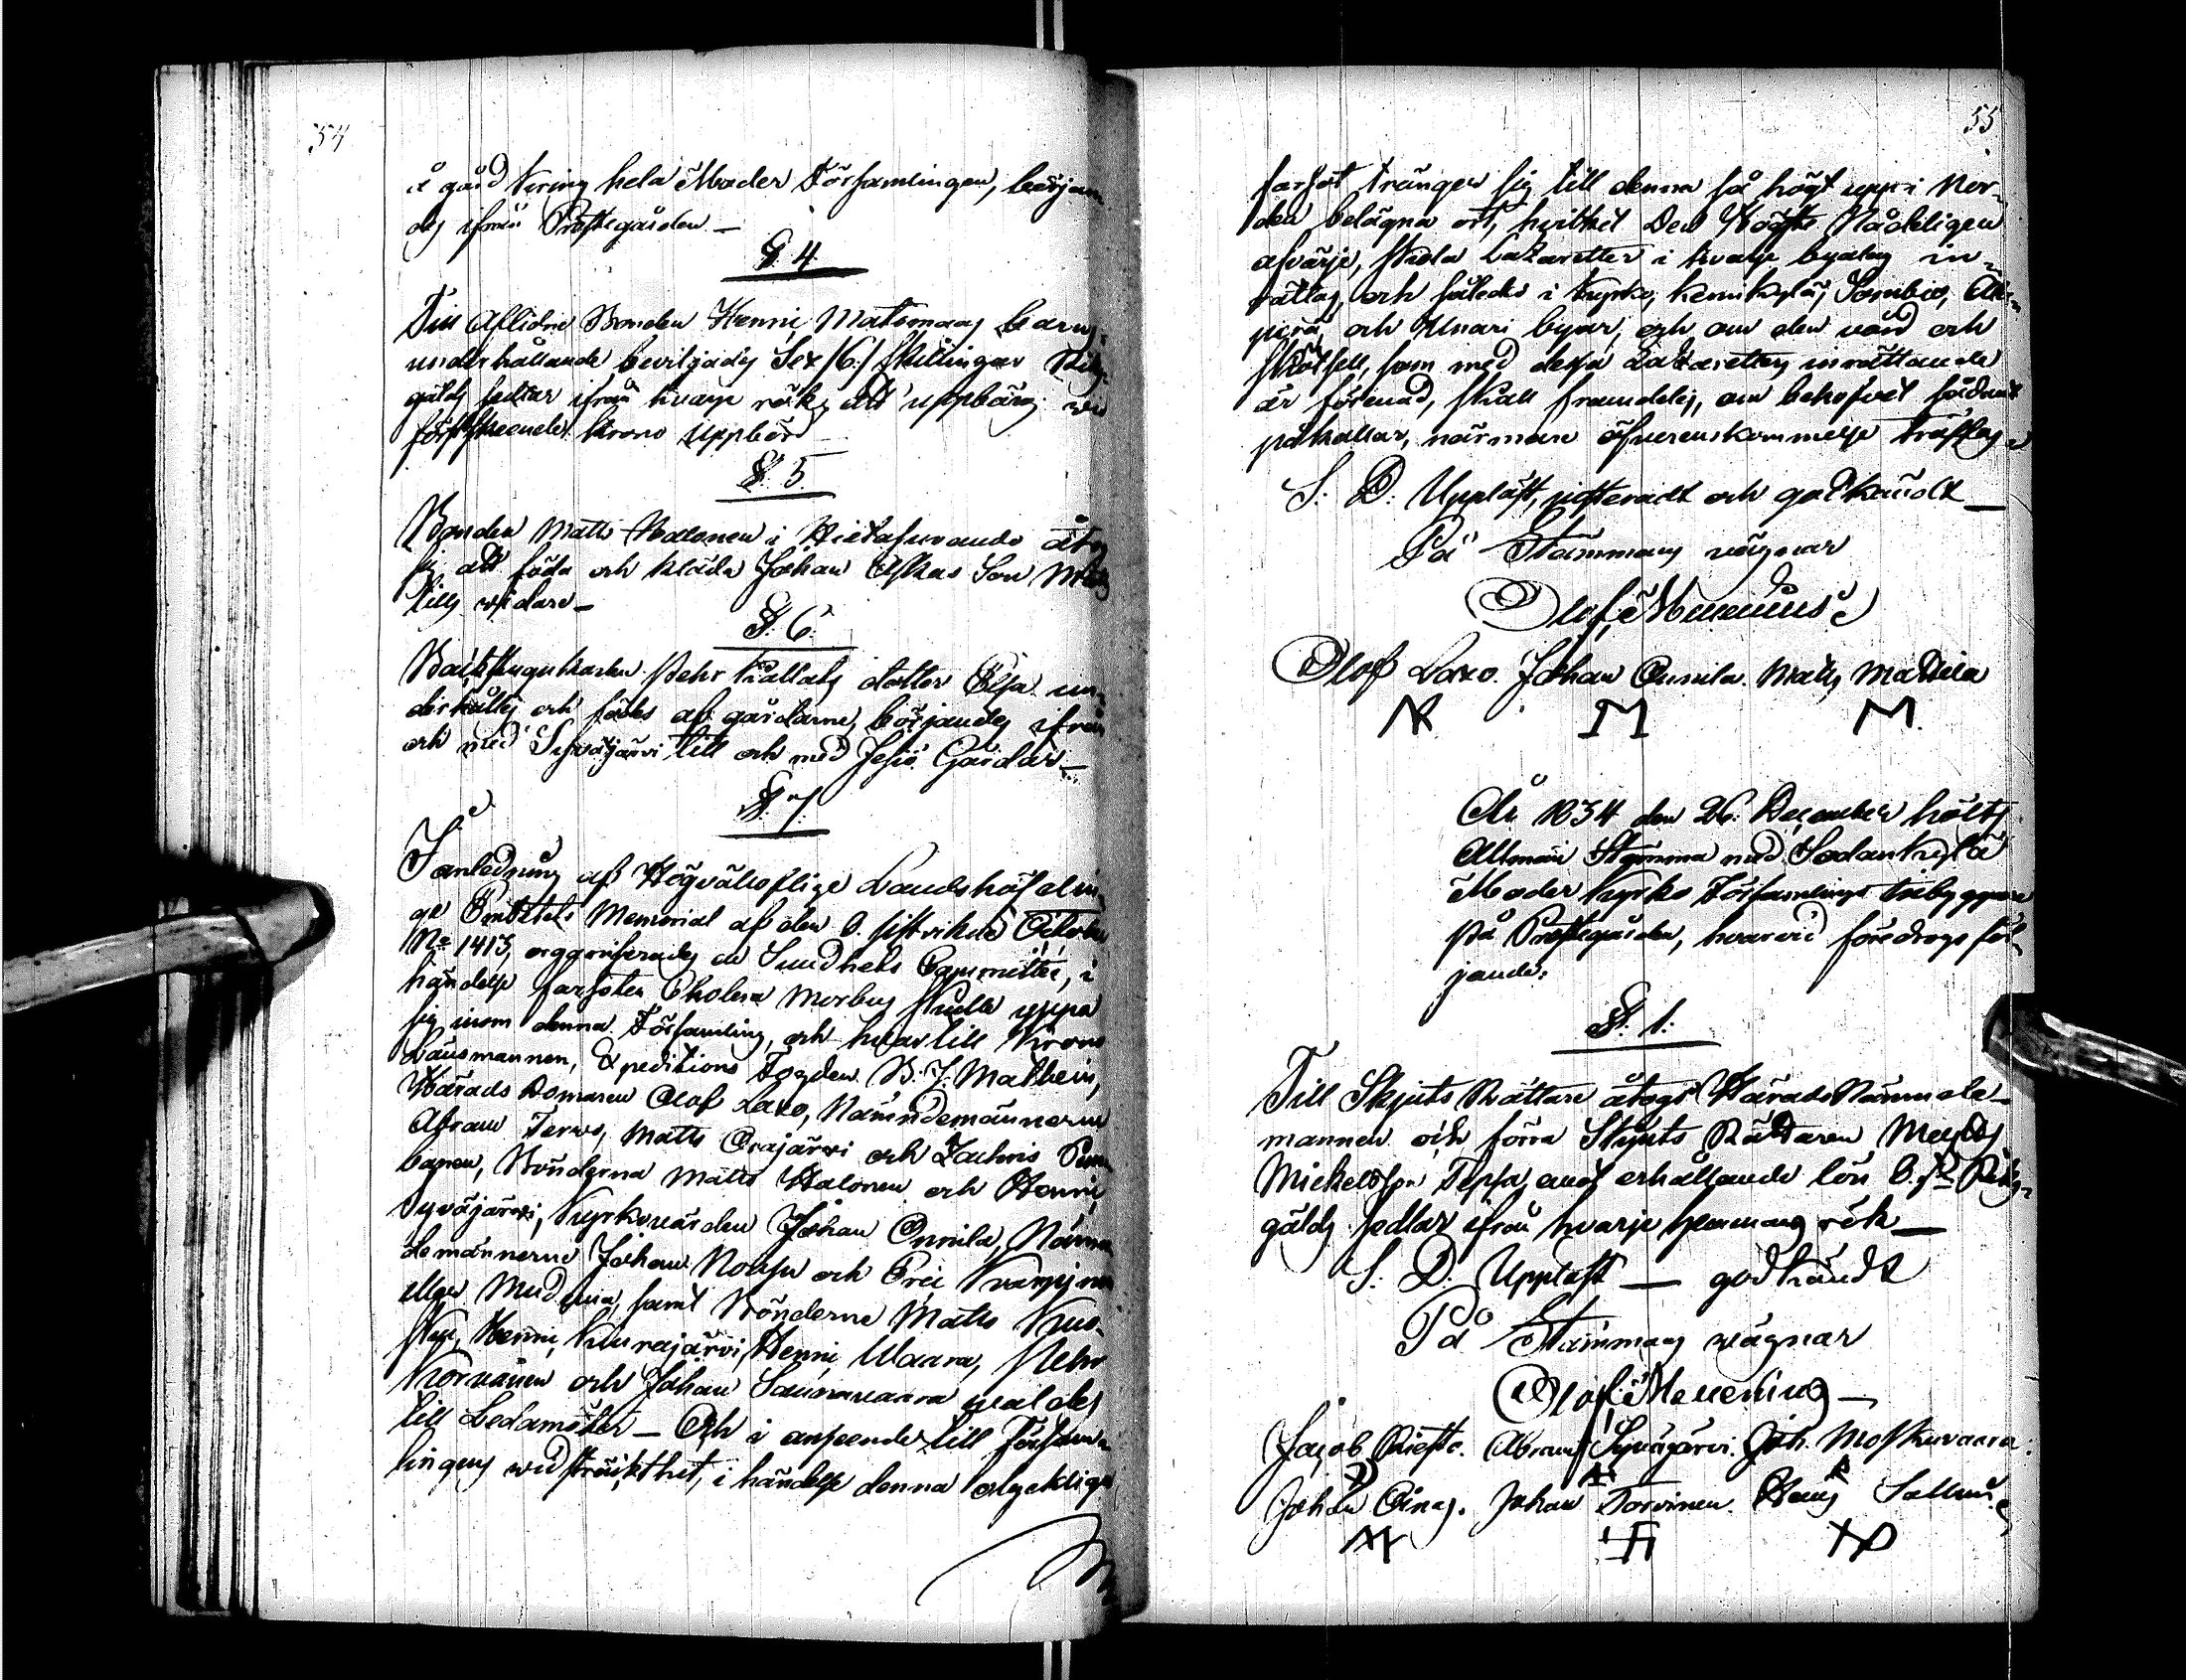 54
å gård kring hela Moder Församlingen, början-
des ifrån Prostegården —
§. 4.
Till Aflidne Bonden Henric Matsmans barns
underhållande beviljades Sex /6/ skillingar Riks-
gälds sedlar ifrån hvarje rök, att uppbäras wid
först skeende Krono Uppbörd —
§. 5.
Bonden Matts Halonen i Hietasuvando åtog
sig att föda och kläda Johan Askas Son Matts
tills widare —
§. 6.
Pehr Kallats dotter Elsa un-
derhålles och födes af gårdarne, börjandes ifrån
och med Syväjärvi till och med Jesiö Gårdar —
§. 7.
I anledning af Högvälloflige Landshöfdin-
ge Embetets Memorial af den 8. sistvikne October
No 1413, organiserades en Sundhets Committée, i
händelse farsoten Cholera Morbus skulle yppa
sig inom denna Församling, och hvartill Krono
Länsmannen, Expeditions Fogden B. J. Mathein,
Härads Domaren Olof Laxo, Nämndemännerne
Abram Tervo, Matts Orajärvi och Zachris
Bönderna Matts Halonen och Henric
Syväjärvi, Kyrkovärden Johan Onnila, Nämn-
demännerne Johan och Eric
eller samt Bönderne Matts
Henric Kiurajärvi, Henric Waara, Pehr
Korvanen och Johan Saunavaara valdes
till Ledamöter — Och i anseende till Församm-
lingens widsträckthet, i händelse denna olyckliga
55
farsot tränger sig till denna så högt upp i Nor-
den belägna ort, hvilket Den Högste Nådeligen
afvärje, skola Lazaretter i hvarje byalag in-
rättas, och således i Kyrko, Kemikylä, Sombio,
och Unari byar, och om den vård och
skötsell, som med dessa Lazaretters inrättande
är förenad, skall framdeles, om behofvet sådant
påkallar, närmare öfverenskommelse träffas
S. D. Uppläst, justeradt och godkändt —
På Stämmans vägnar
Olof Mellenius
Olof Laxo. Johan Onnila. Matts Mattila
År 1834 den 26. December hölts
Allmän Stämma med Sodankylä
Moder Kyrko Församlings Inbyggare
på Prostegården, hvarvid föredrogs föl-
jande:
§. 1.
Till Skjuts Rättare åtogs Härads Nämnde-
mannen och förra Skjuts Rättaren
Mickelsson Tepsa, emot erhållande lön 8. sk Riks-
gälds sedlar ifrån hvarje hemmans rök —
S. D. Uppläst — godkändt
På Stämmans vägnar
Olof Mellenius —
Jacob Riesto. Abram Syväjärvi. Joh. Moskuvaara.
Johan Oinas. Johan Torvinen. Hans